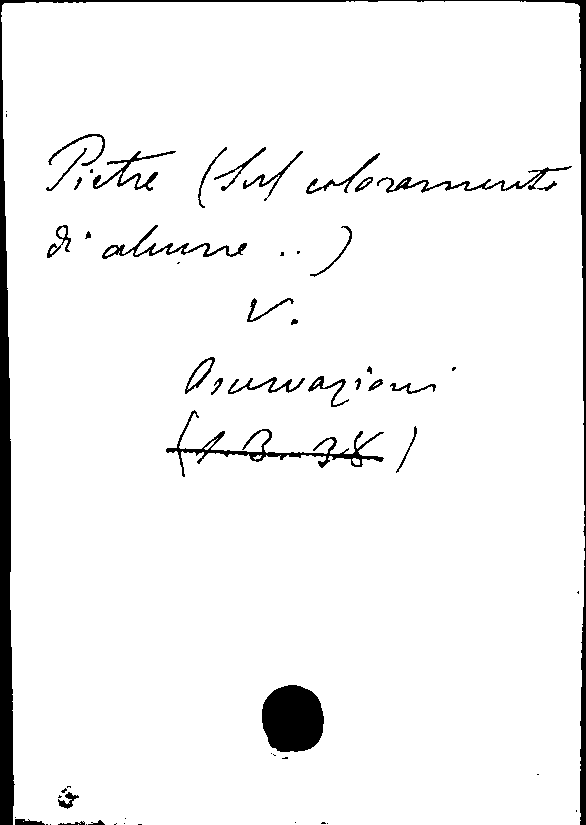 Pietre (Sul coloramento
di alcune ..)
V.
Osservazioni
(1. B. 38)